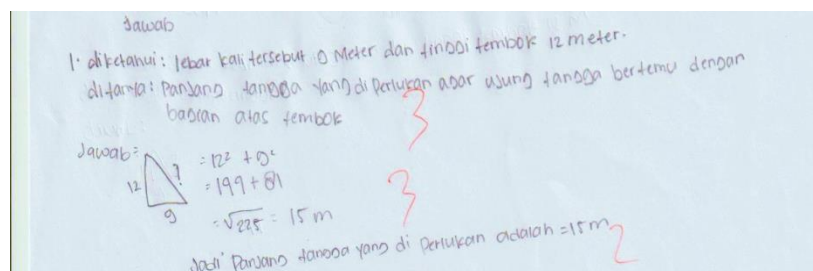 Jawab
1. diketahui: lebar kali tersebut 9 Meter dan tinggi tembok 12 meter.
ditanya: Panjang tangga yang di Perlukan agar ujung tangga bertemu dengan
bagian atas tembok
3
Jawab =
12 ? 9
= 12² + 9²
= 144 + 81
= √225 = 15 m
3
Jadi Panjang tangga yang di Perlukan adalah = 15 m
2